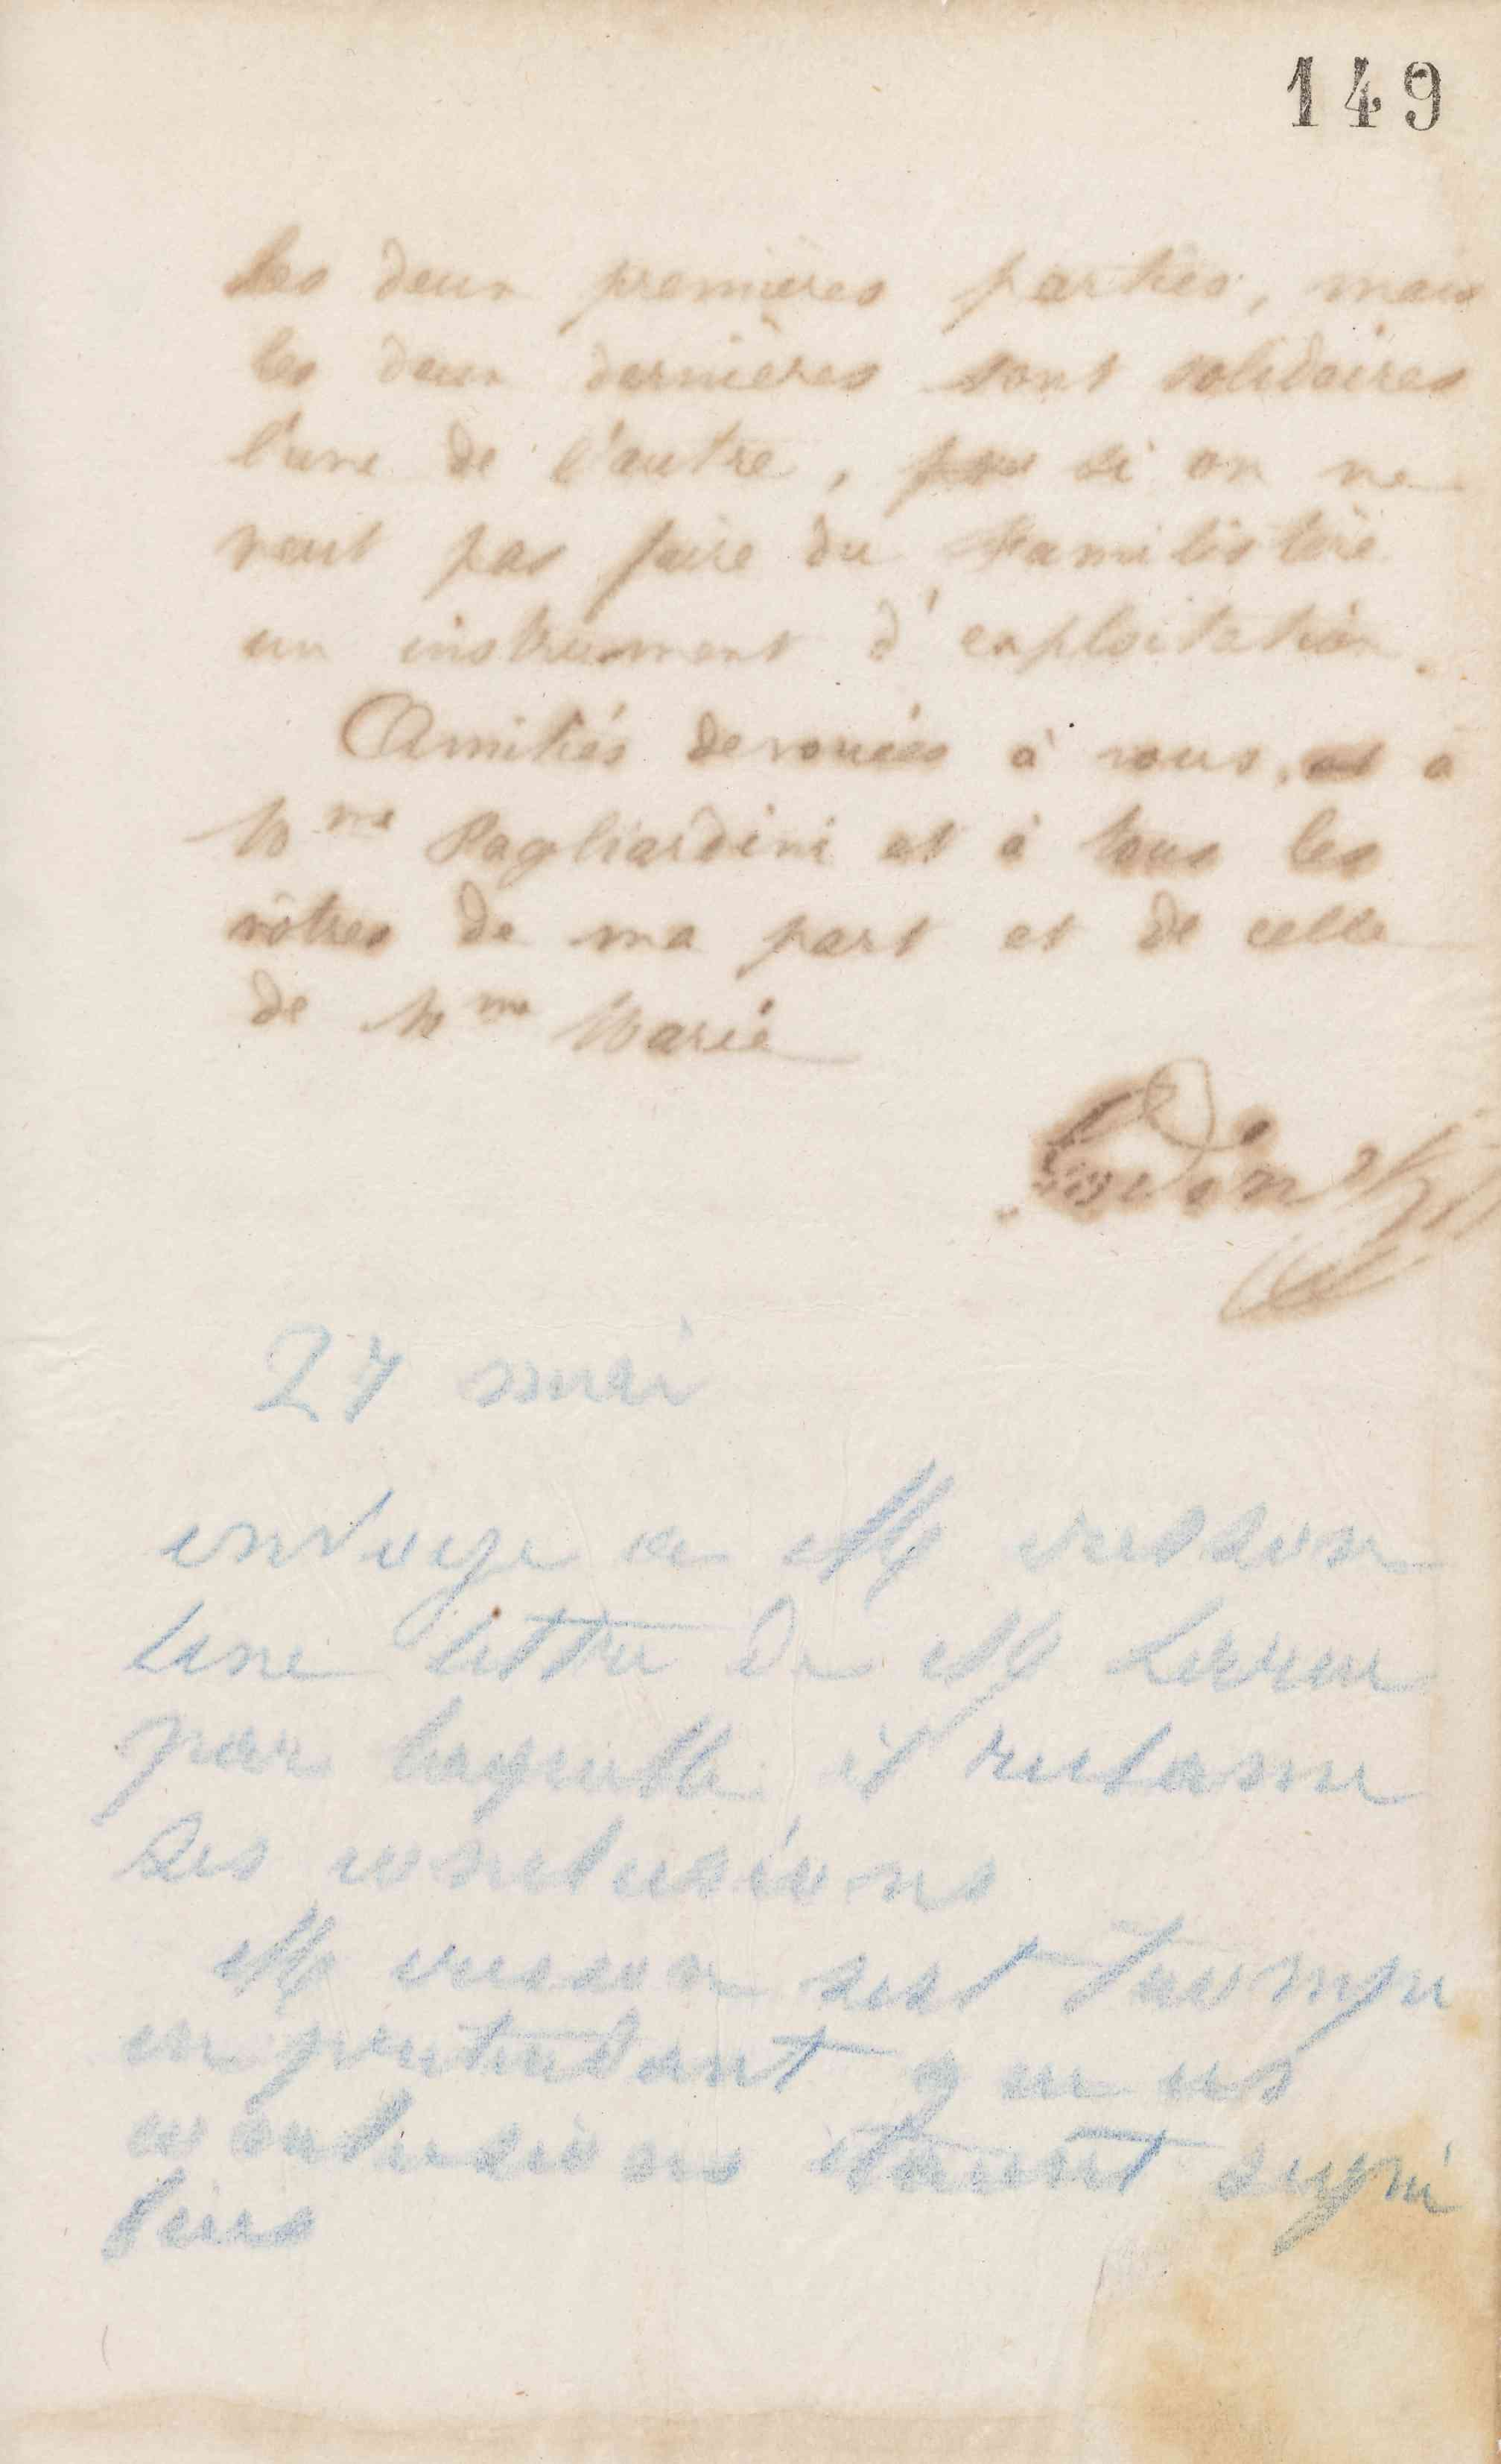 149
les deux premières parties, mais
les deux dernières sont solidaires
l'une de l'autre, si on ne
veut pas faire du Familistère
un instrument d'exploitation.
Amitiés dévouées à vous, et à
Mme Pagliardini et à tous les
vôtres de ma part et de celle
de Mme Marie
Godin
27 mai
envoye a M
une lettre de M
par laquelle il reclame
ses conclusions
M sest trompe
en pretendant que
conclusions etaient